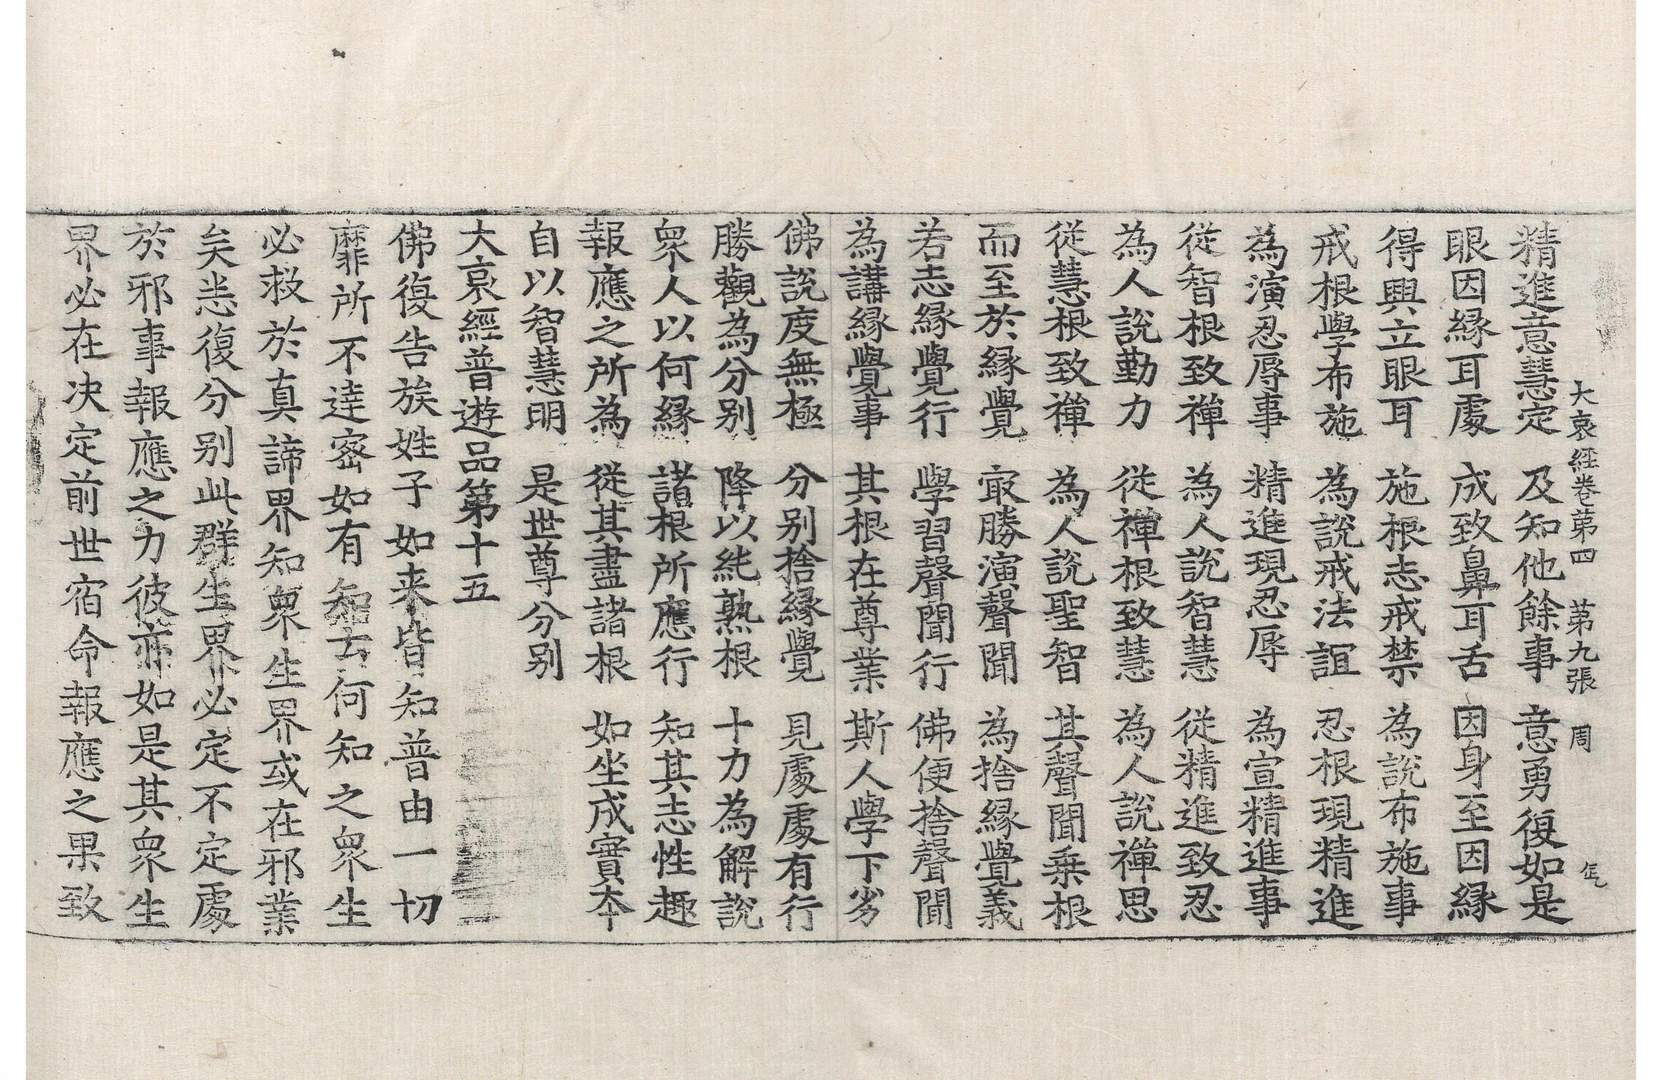 大哀經卷第四 第九張 周
精進意慧定 及知他餘事 意勇復如是
眼因縁耳處 成致鼻耳舌 因身至因縁
得興立眼耳 施根志戒禁 為說布施事
戒根學布施 為說戒法誼 忍根現精進
為演忍辱事 精進現忍辱 為宣精進事
從智根致禪 為人說智慧 從精進致忍
為人說勤力 從禪根致慧 為人說禪思
從慧根致禪 為人說聖智 其聲聞乘根
而至於縁覺 㝡勝演聲聞 為捨縁覺義
若志縁覺行 學習聲聞行 佛便捨聲聞
為講縁覺事 其根在尊業 斯人學下劣
佛說度無極 分别捨縁覺 見處處有行
勝觀為分别 降以純熟根 十力為解說
衆人以何縁 諸根所應行 知其志性趣
報應之所為 從其盡諸根 如坐成實本
自以智慧明 是世尊分别
大哀經普遊品第十五
佛復告族姓子如来皆知普由一切
靡所不達密如有知云何知之衆生
必救於真諦界知衆生界或在邪業
矣悉復分别此群生界必定不定處
於邪事報應之力彼亦如是其衆生
界必在决定前世宿命報應之果致